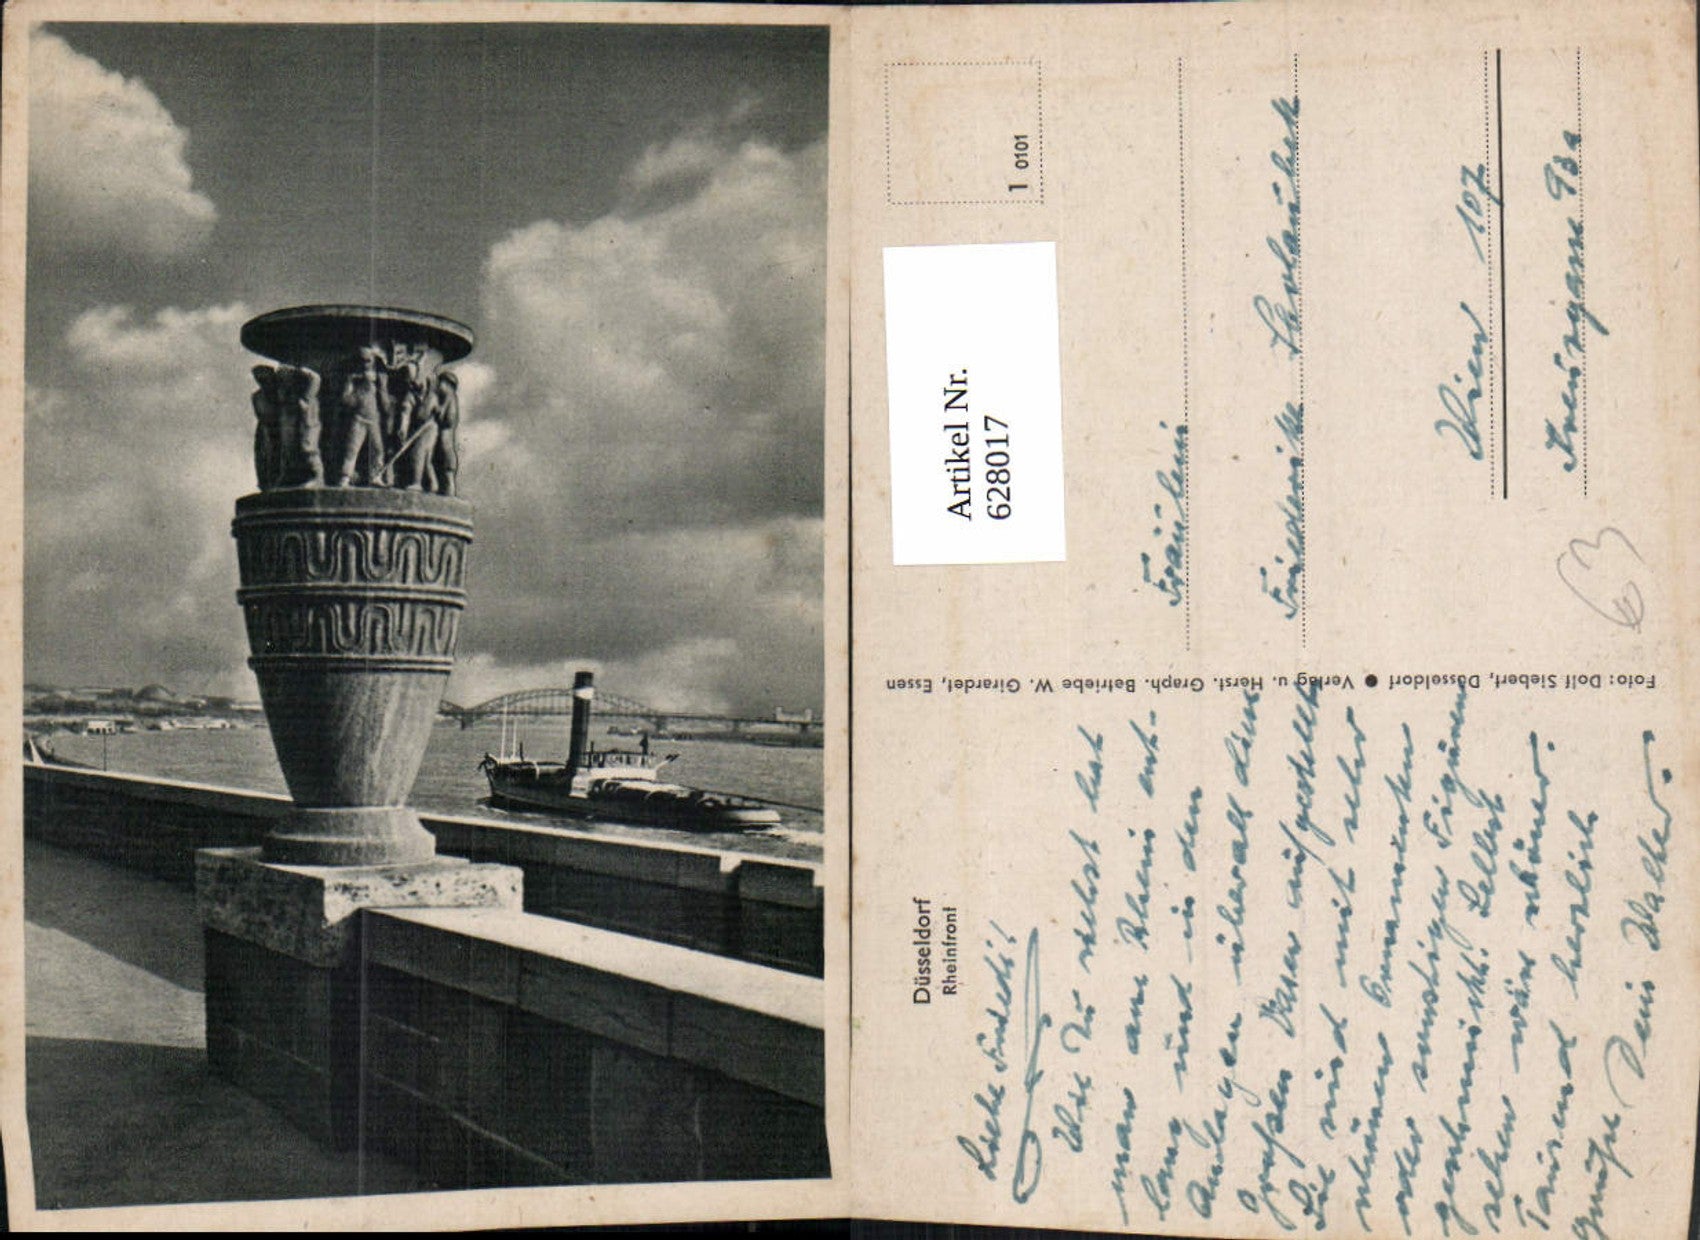 Düsseldorf
Rheinfront
Liebe Friedl!
Wie Du siehst hat
man am Rhein ent-
lang und in den
Anlagen überall diese
großen Vasen aufgestellt.
Sie sind mit sehr
schönen Ornamenten
oder sonstigen Figuren
geschmückt. Selbst
sehen wär schöner.
Tausend herzlich
Grüße Dein Walter.
Foto: Dolf Siebert, Düsseldorf ● Verlag u. Herst. Graph. Betriebe W. Girardet, Essen
1 0101
Artikel Nr.
628017
Fräulein
Friederike
Wien 107
63